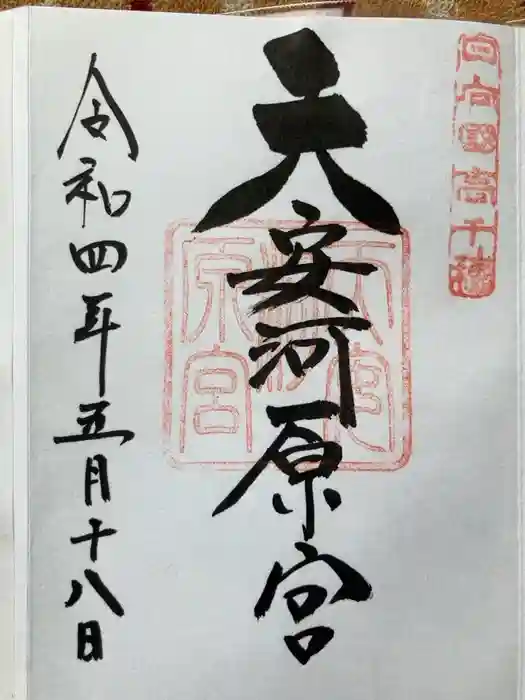 日向國高千穂
天安河原宮
天安河原宮
令和四年五月十八日